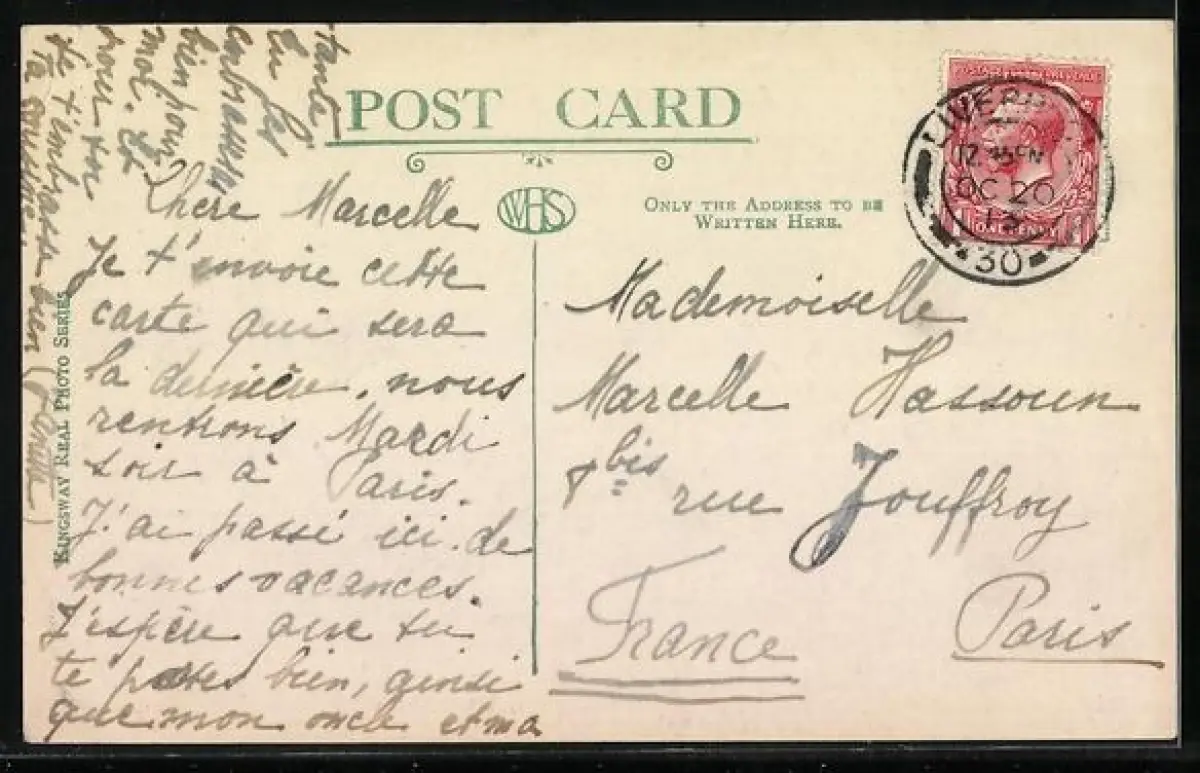 POST CARD
WHS
ONLY THE ADDRESS TO BE
WRITTEN HERE.
KINGSWAY REAL PHOTO SERIES
LIVERP
12.45PM
OC 20
13
30
ONE PENNY
Chère Marcelle
Je t'envoie cette
carte qui sera
la dernière, nous
rentrons Mardi
soir à Paris.
J'ai passé ici de
bonnes vacances.
J'espère que tu
te portes bien, ainsi
que mon oncle et ma
tante.
Tu les
embrasseras
bien pour
moi. Et
pour toi
je t'embrasse bien
Ta cousine
Mademoiselle
Marcelle Hassoun
bis
rue Jouffroy
Paris
France